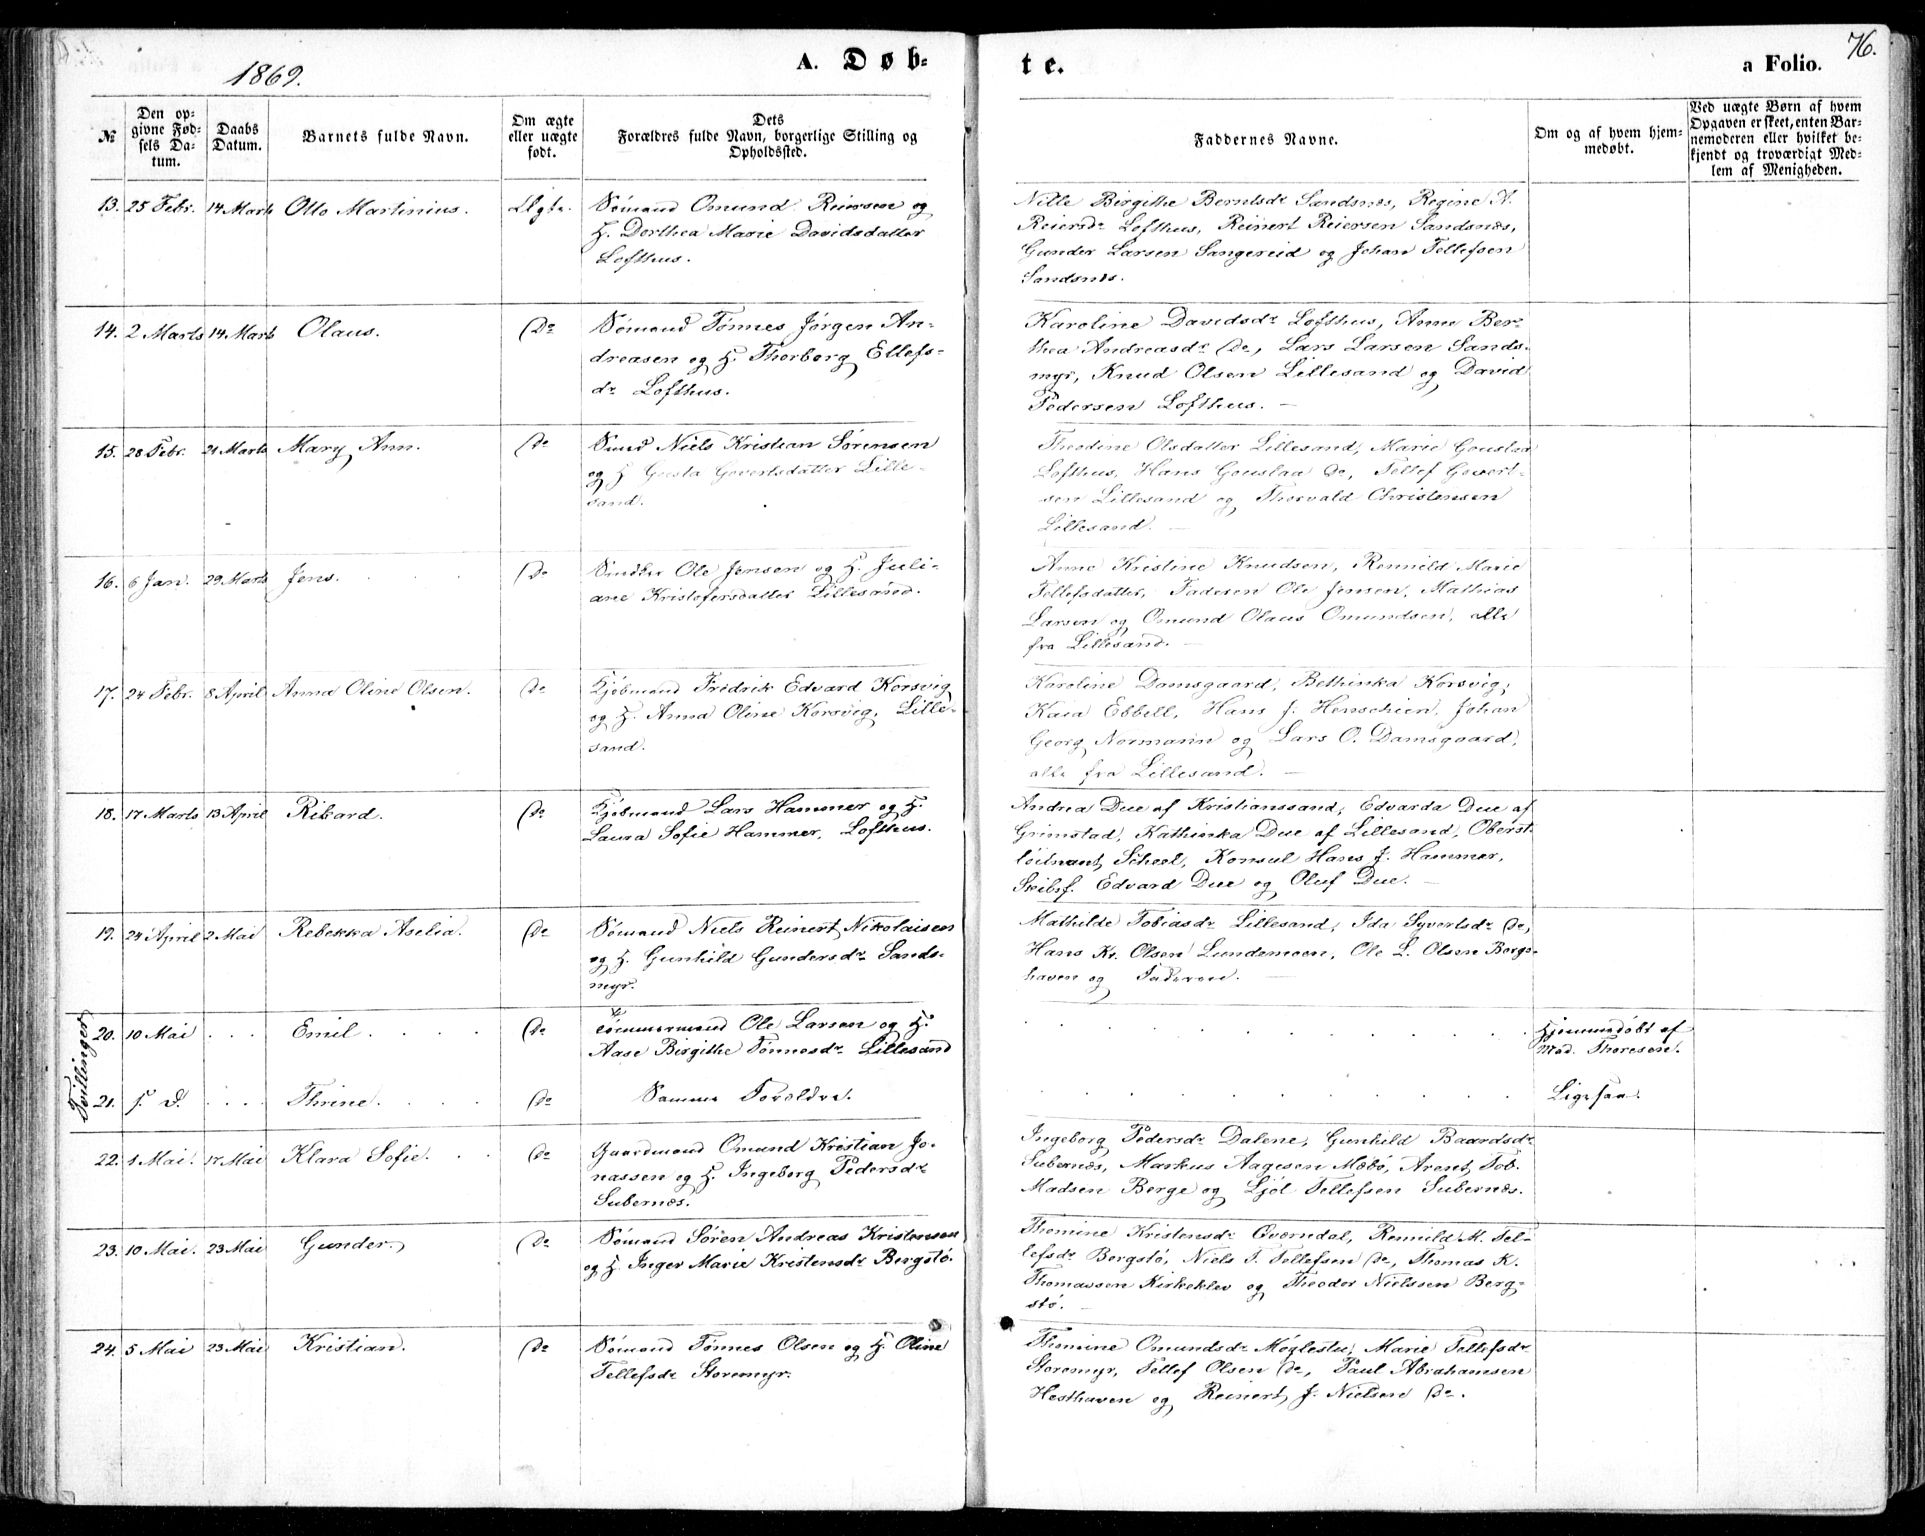 1869.
A. Døb-
te.
76.
a Folio.
№
Den op-
givne Fød-
sels Da-
tum.
Daabs
Datum.
Barnets fulde Navn.
Om ægte
eller uægte
født.
Dets
Forældres fulde Navn, borgerlige Stilling og
Opholdssted.
Faddernes Navne.
Om og af hvem hjem-
medøbt.
Ved uægte Børn af hvem
Opgaven er skeet, enten Bar-
nemoderen eller hvilket be-
kjendt og troværdigt Med-
lem af Menigheden.
13. 25 Febr. 14 Marts Otto Martinius. Ægte. Sömand Omund Reiersen og
H. Dorthea Marie Davidsdatter
Lofthus.
Nille Birgithe Berntsdr Sandsnes, Regine N.
Reiersdr Lofthus, Reinert Reiersen Sandsnes,
Gunder Larsen Sangereid og Johan Tellefsen
Sandsnes.
14. 2 Marts 14 Marts Olaus. Do Sömand Tønnes Jørgen An-
dreasen og H. Thorborg Ellefs-
dr Lofthus.
Karoline Davidsdr Lofthus, Anne Ber-
thea Andreasdr Do, Lars Larsen Sands-
myr, Knud Olsen Lillesand og David
Pedersen Lofthus. —
15. 28 Febr. 21 Marts Mary Ann. Do Smed Niels Kristian Sørensen
og H. Gusta Govertsdatter Lille-
sand.
Theodine Olsdatter Lillesand, Marie Gouslaa
Lofthus, Hans Gouslaa Do, Tellef Govert-
sen Lillesand og Thorvald Christensen
Lillesand. —
16. 6 Jan. 29 Marts Jens. Do Snedker Ole Jensen og H. Juli-
ane Kristofersdatter Lillesand.
Anne Kristine Knudsen, Ronnild Marie
Tellefsdatter, Faderen Ole Jensen, Mathias
Larsen og Omund Olaus Omundsen, alle
fra Lillesand. —
17. 24 Febr. 8 April Anna Oline Olsen. Do Kjöbmand Fridrik Edvard Korsvig
og H. Anna Oline Korsvig, Lille-
sand.
Karoline Damsgaard, Bethinka Korsvig,
Kaia Ebbell, Hans J. Henschien, Johan
Georg Normann og Lars O. Damsgaard,
alle fra Lillesand. —
18. 17 Marts 13 April Rikard. Do Kjöbmand Lars Hammer og H.
Laura Sofie Hammer, Lofthus.
Andrea Due af Kristianssand, Edvarda Due af
Grimstad, Kathinka Due af Lillesand, Oberst-
löitnant Scheel, Konsul Hans J. Hammer,
Skibsf. Edvard Due og Oluf Due. —
19. 24 April 2 Mai Rebekka Aselia. Do Sömand Niels Reinert Nikolaisen
og H. Gunhild Gundersdr Sands-
myr.
Mathilde Tobiasdr Lillesand, Ida Syvertsdr Do,
Hans Kr. Olsen Lundemoen, Ole L. Olsen Bergs-
haven og Faderen. —
Tvillinger
20. 10 Mai . . . Emil. Do Tömmermand Ole Larsen og H.
Aase Birgithe Tønnesdr Lillesand
Hjemmedøbt af
Mad. Thoresen.
21. s. d. . . . Thrine. Do Samme Forældre.
Ligesaa.
22. 1 Mai. 17 Mai Klara Sofie. Do Gaardmand Omund Kristian Jo-
nassen og H. Ingeborg Pedersdr
Subernæs.
Ingeborg Pedersdr Dalene, Gunhild Baardsdr
Subernæs, Markus Aagesen Mæbö, Arent Tob.
Madsen Berge og Ljöl Tellefsen Subernæs.
23. 10 Mai. 23 Mai Gunder. Do Sömand Søren Andreas Kristensen
og H. Inger Marie Kristensdr Bergstö.
Thomine Kristensdr Qværndal, Ronnild M. Tel-
lefsdr Bergstö, Niels T. Tellefsen Do, Thomas K.
Thomassen Kirkeklev og Theodor Nielssen Berg-
stö. —
24. 5 Mai 23 Mai Kristian. Do Sömand Tønnes Olsen og H. Oline
Tellefsdr Storemyr.
Thomine Omundsdr Møglestu, Marie Tellefsdr
Storemyr, Tellef Olsen Do, Paul Abrahamsen
Hesthaven og Reinert J. Nielsen Do.